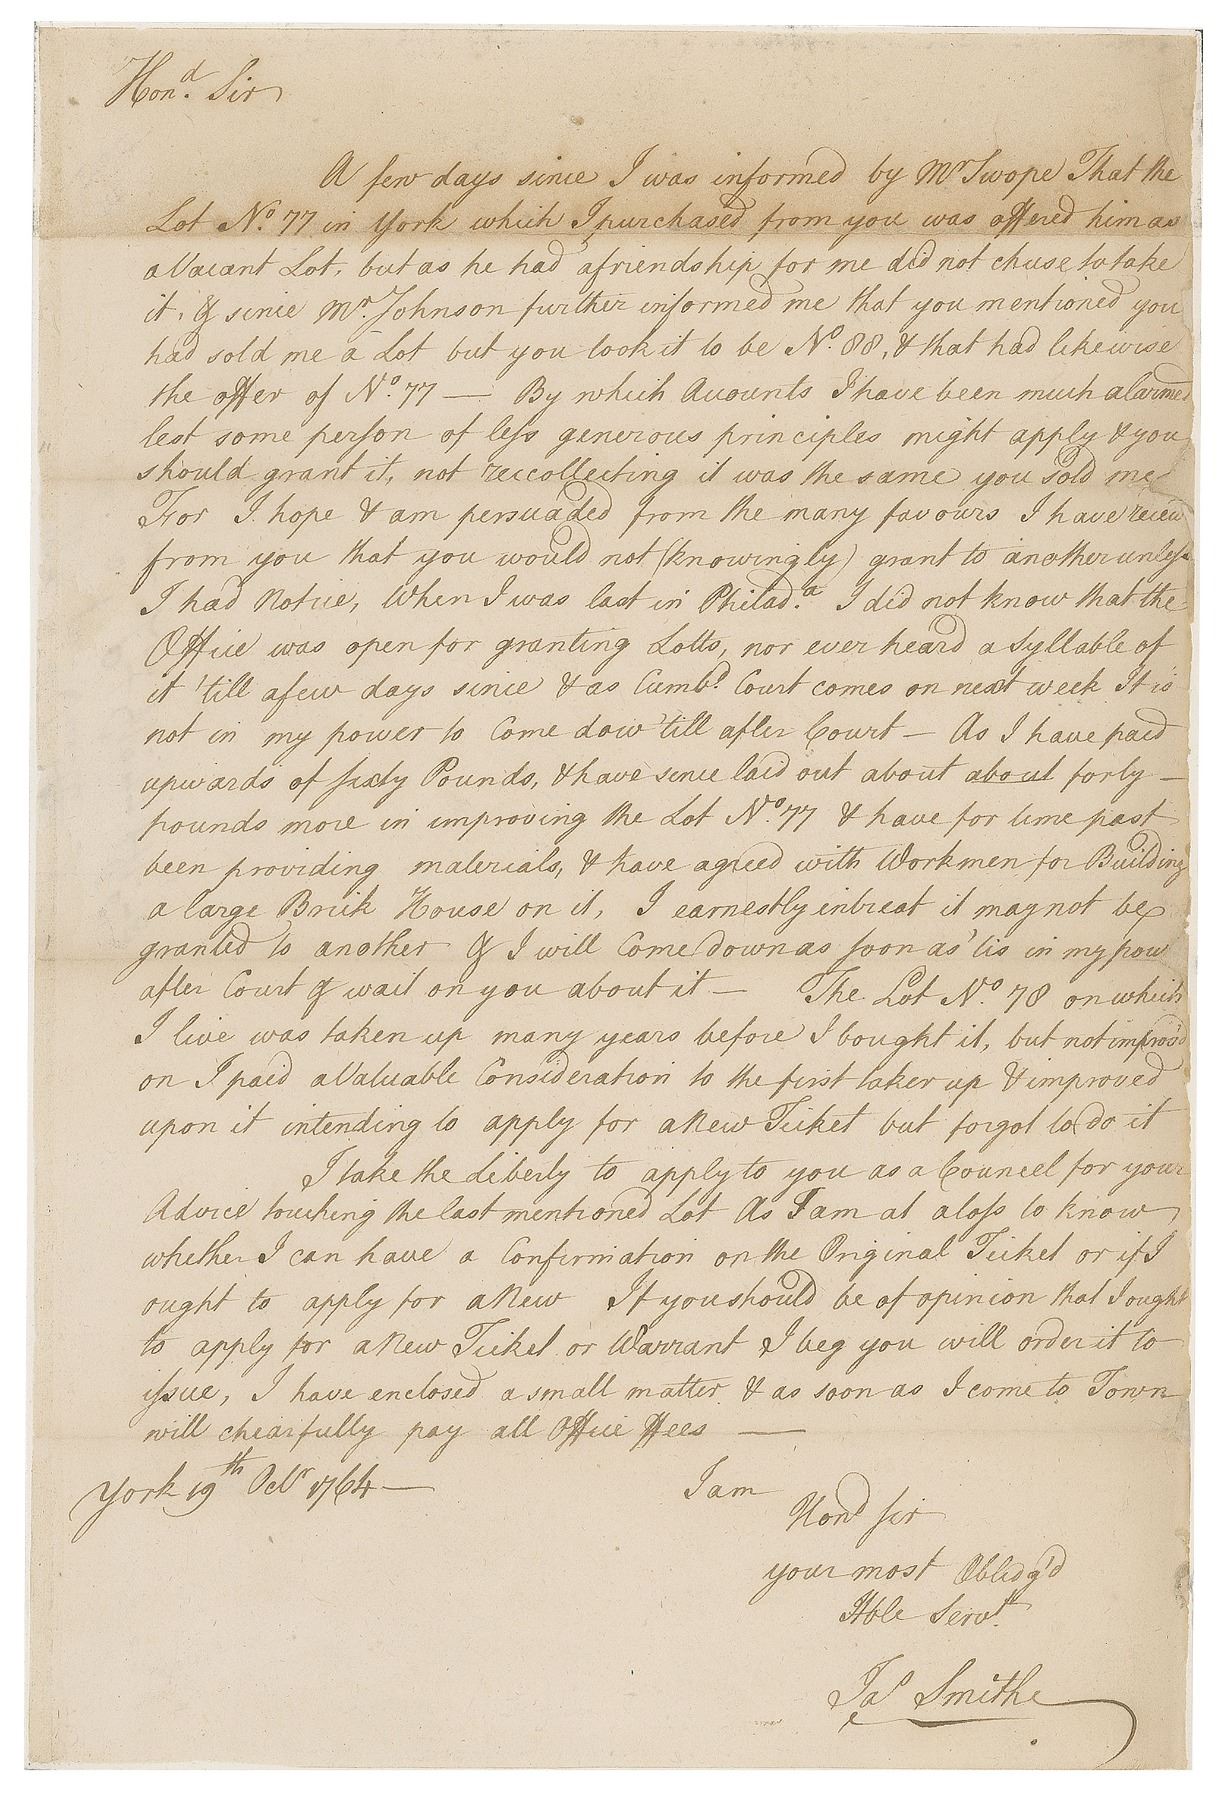 Hon.d Sir
A few days since I was informed by Mr Swope That the
Lot No. 77 in York which I purchased from you was offered him as
a Vacant Lot, but as he had a friendship for me did not chuse to take
it, & since Mr. Johnson further informed me that you mentioned you
had sold me a Lot but you took it to be No. 88, & that had likewise
the offer of No. 77 — By which Accounts I have been much alarmed
lest some person of less generous principles might apply & you
should grant it, not reccollecting it was the same you sold me
For I hope & am persuaded from the many favours I have receiv
from you that you would not (knowingly) grant to another unless
I had Notice, When I was last in Philad.a I did not know that the
Office was open for granting Lotts, nor ever heard a Syllable of
it 'till a few days since & as Cumb.d Court comes on next week It is
not in my power to Come dow 'till after Court — As I have paid
upwards of sixty Pounds, & have since laid out about about forty —
pounds more in improving the Lot No. 77 & have for time past
been providing materials, & have agreed with Workmen for Building
a large Brick House on it, I earnestly intreat it may not be
granted to another & I will Come down as soon as 'tis in my pow
after Court & wait on you about it — The Lot No. 78 on which
I live was taken up many years before I bought it, but not improv'd
on I paid a Valuable Consideration to the first taker up & improved
upon it intending to apply for a New Ticket but forgot to do it
I take the Liberty to apply to you as a Councel for your
Advice touching the last mentioned Lot As I am at a loss to know
whether I can have a Confirmation on the Original Ticket or if I
ought to apply for a New If you should be of opinion that I ought
to apply for a New Ticket or Warrant I beg you will order it to
issue, I have enclosed a small matter & as soon as I come to Town
will chearfully pay all Office ffees —
York 19th Octr 1764 —
I am
Hond Sir
your most Oblidg'd
Hble Servt.
Jas Smith